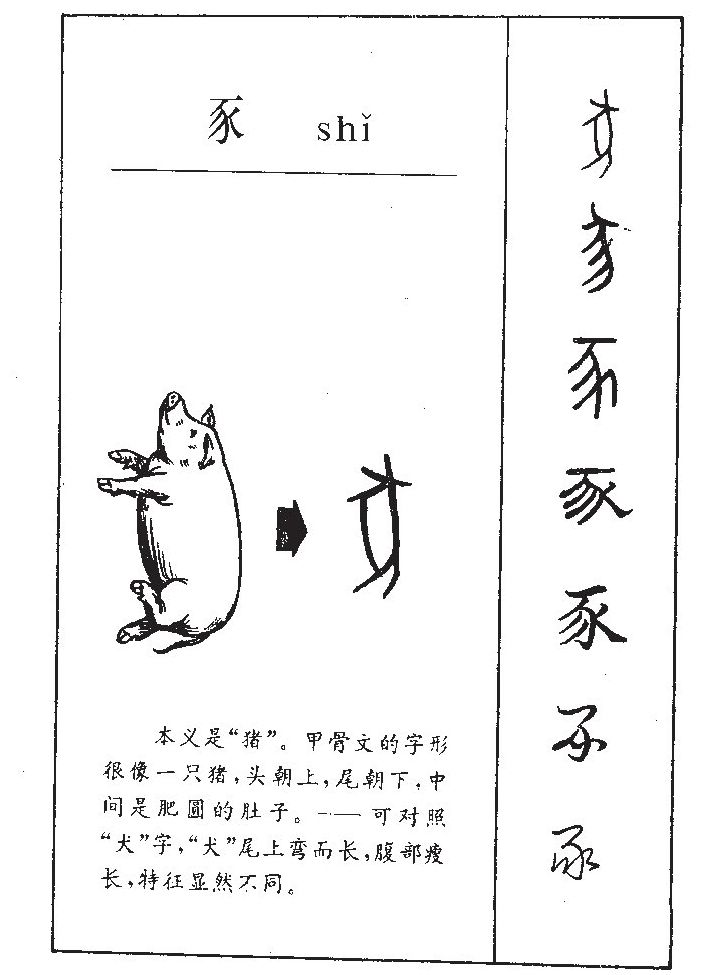 豕 shǐ
本义是“猪”。甲骨文的字形
很像一只猪，头朝上，尾朝下，中
间是肥圆的肚子。——可对照
“犬”字，“犬”尾上弯而长，腹部瘦
长，特征显然不同。
豕
豕
豕
豕
豕
豕
豕